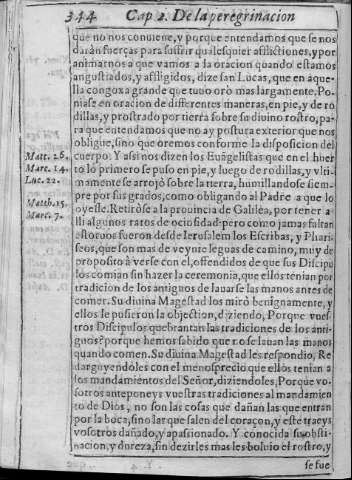 344 Cap 2. De la peregrinacion
que no nos conviene, y porque entendamos que se nos
darán fuerças para suffrir qualesquier afflictiones, y por
animarnos a que vamos a la oracion quando estamos
angustiados, y affligidos, dize san Lucas, que en aque-
lla congoxa grande que tuuo orò mas largamente. Po-
niase en oracion de differentes maneras, en pie, y de ro
dillas, y prostrado por tierra sobre su diuino rostro, pa-
ra que entendamos que no ay postura exterior que nos
obligue, sino que oremos conforme la disposicion del
Matt. 26. cuerpo. Y assi nos dizen los Euãgelistas que en el huer
Marc. 14. to lo primero se puso en pie, y luego de rodillas, y vlti-
Luc. 22. mamente se arrojò sobre la tierra, humillandose siem-
pre por sus grados, como obligando al Padre a que lo
Matth. 15. oyesse. Retiròse a la prouincia de Galilea, por tener a
Marc. 7. lli algunos ratos de ociosidad: pero como jamas faltan
estoruos fueron desde Ierusalem los Escribas, y Phari-
seos, que son mas de veynte leguas de camino, muy de
proposito à verse con el, offendidos de que sus Discipu
los comian sin hazer la ceremonia, que ellos tenian por
tradicion de los antiguos de lauarse las manos antes de
comer. Su diuina Magestad los mirò benignamente, y
ellos le pusieron la objection, diziendo, Porque vues-
tros Discipulos quebrantan las tradiciones de los anti-
guos? porque hemos sabido que no se lauan las manos
quando comen. Su diuina Magestad les respondio, Re
darguyendoles con el menosprecio que ellos tenian a
los mandamientos del Señor, diziendoles, Porque vo-
sotros anteponeys vuestras tradiciones al mandamien
to de Dios, no son las cosas que dañan las que entran
por la boca, sino las que salen del coraçon, y este traeys
vosotros dañado, y apassionado. Y conocida su obsti-
nacion, y dureza, sin dezirles mas les boluio el rostro, y
se fue